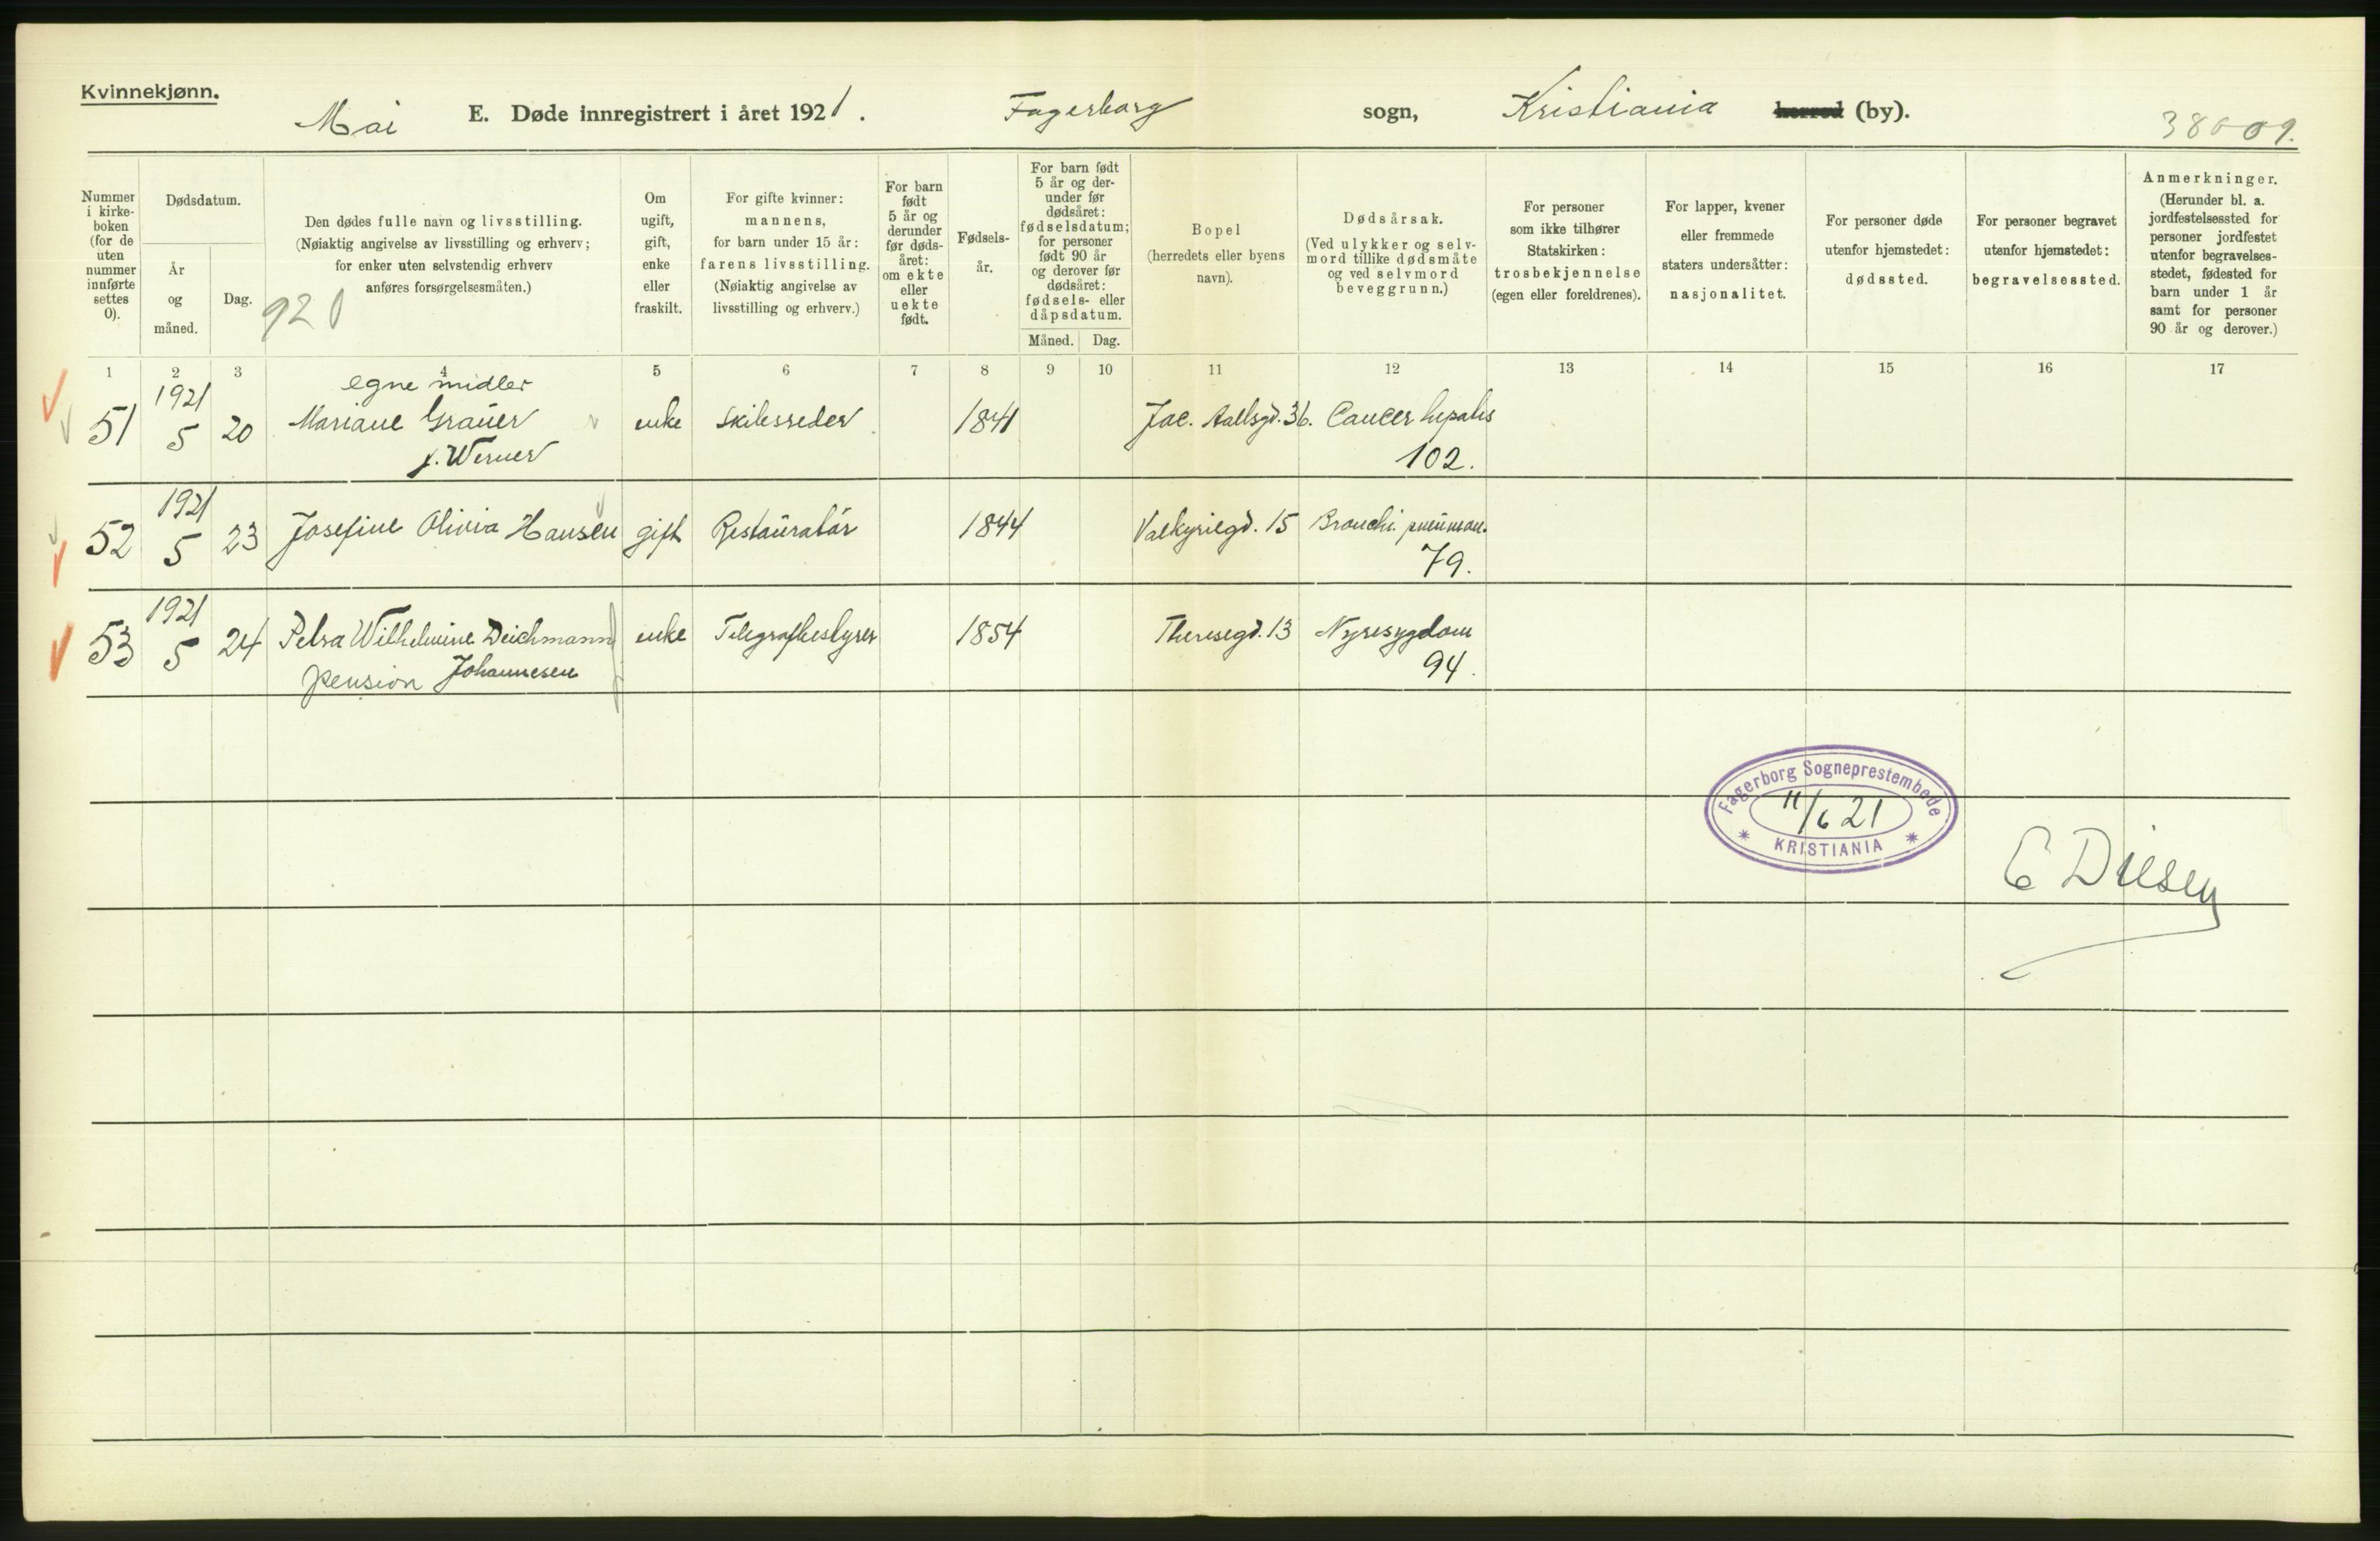 Kvinnekjønn.
Mai E. Døde innregistrert i året 1921. Fagerborg sogn, Kristiania herred (by).
38009.
Nummer i kirke- boken (for de uten nummer innførte settes 0).
Dødsdatum.
År og måned.
Dag.
920
Den dødes fulle navn og livsstilling.
(Nøiaktig angivelse av livsstilling og erhverv;
for enker uten selvstendig erhverv
anføres forsørgelsesmåten.)
Om
ugift,
gift,
enke
eller
fraskilt.
For gifte kvinner:
mannens,
for barn under 15 år:
farens livsstilling.
(Nøiaktig angivelse av
livsstilling og erhverv.)
For barn
født
5 år og
derunder
før døds-
året:
om ekte
eller
uekte
født.
Fødsels-
år.
For barn født
5 år og der-
under før
dødsåret:
fødselsdatum;
for personer
født 90 år
og derover før
dødsåret:
fødsels- eller
dåpsdatum.
Måned. Dag.
Bopel
(herredets eller byens
navn).
Dødsårsak.
(Ved ulykker og selv-
mord tillike dødsmåte
og ved selvmord
beveggrunn.)
For personer
som ikke tilhører
Statskirken:
trosbekjennelse
(egen eller foreldrenes).
For lapper, kvener
eller fremmede
staters undersåtter:
nasjonalitet.
For personer døde
utenfor hjemstedet:
dødssted.
For personer begravet
utenfor hjemstedet:
begravelsessted.
Anmerkninger.
(Herunder bl. a.
jordfestelsessted for
personer jordfestet
utenfor begravelses-
stedet, fødested for
barn under 1 år
samt for personer
90 år og derover.)
1 2 3 4 5 6 7 8 9 10 11 12 13 14 15 16 17
egne midler
51 1921 5 20 Mariane Graüer enke Skibsreder 1841 Jac. Aallsgd. 36. Cancer hepatis
f. Werner 102.
52 1921 5 23 Josefine Olivia Hansen gift Restauratør 1844 Valkyriegd. 15 Bronchi. pneumon.
79.
53 1921 5 24 Petra Wilhelmine Deichmann enke Telegrafbestyrer 1854 Theresegd. 13 Nyresygdom
pension Johannesen 94.
Fagerborg Sogneprestembede
11/6 21
KRISTIANIA
E Diesen